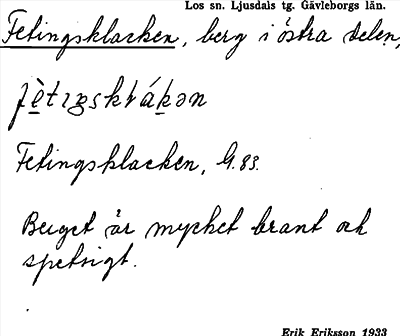 Los sn. Ljusdals tg. Gävleborgs län.
Fetingsklacken, berg i östra delen,
Fetingsklacken, G. 83.
Berget är mycket brant och
spetsigt.
Erik Eriksson 1933